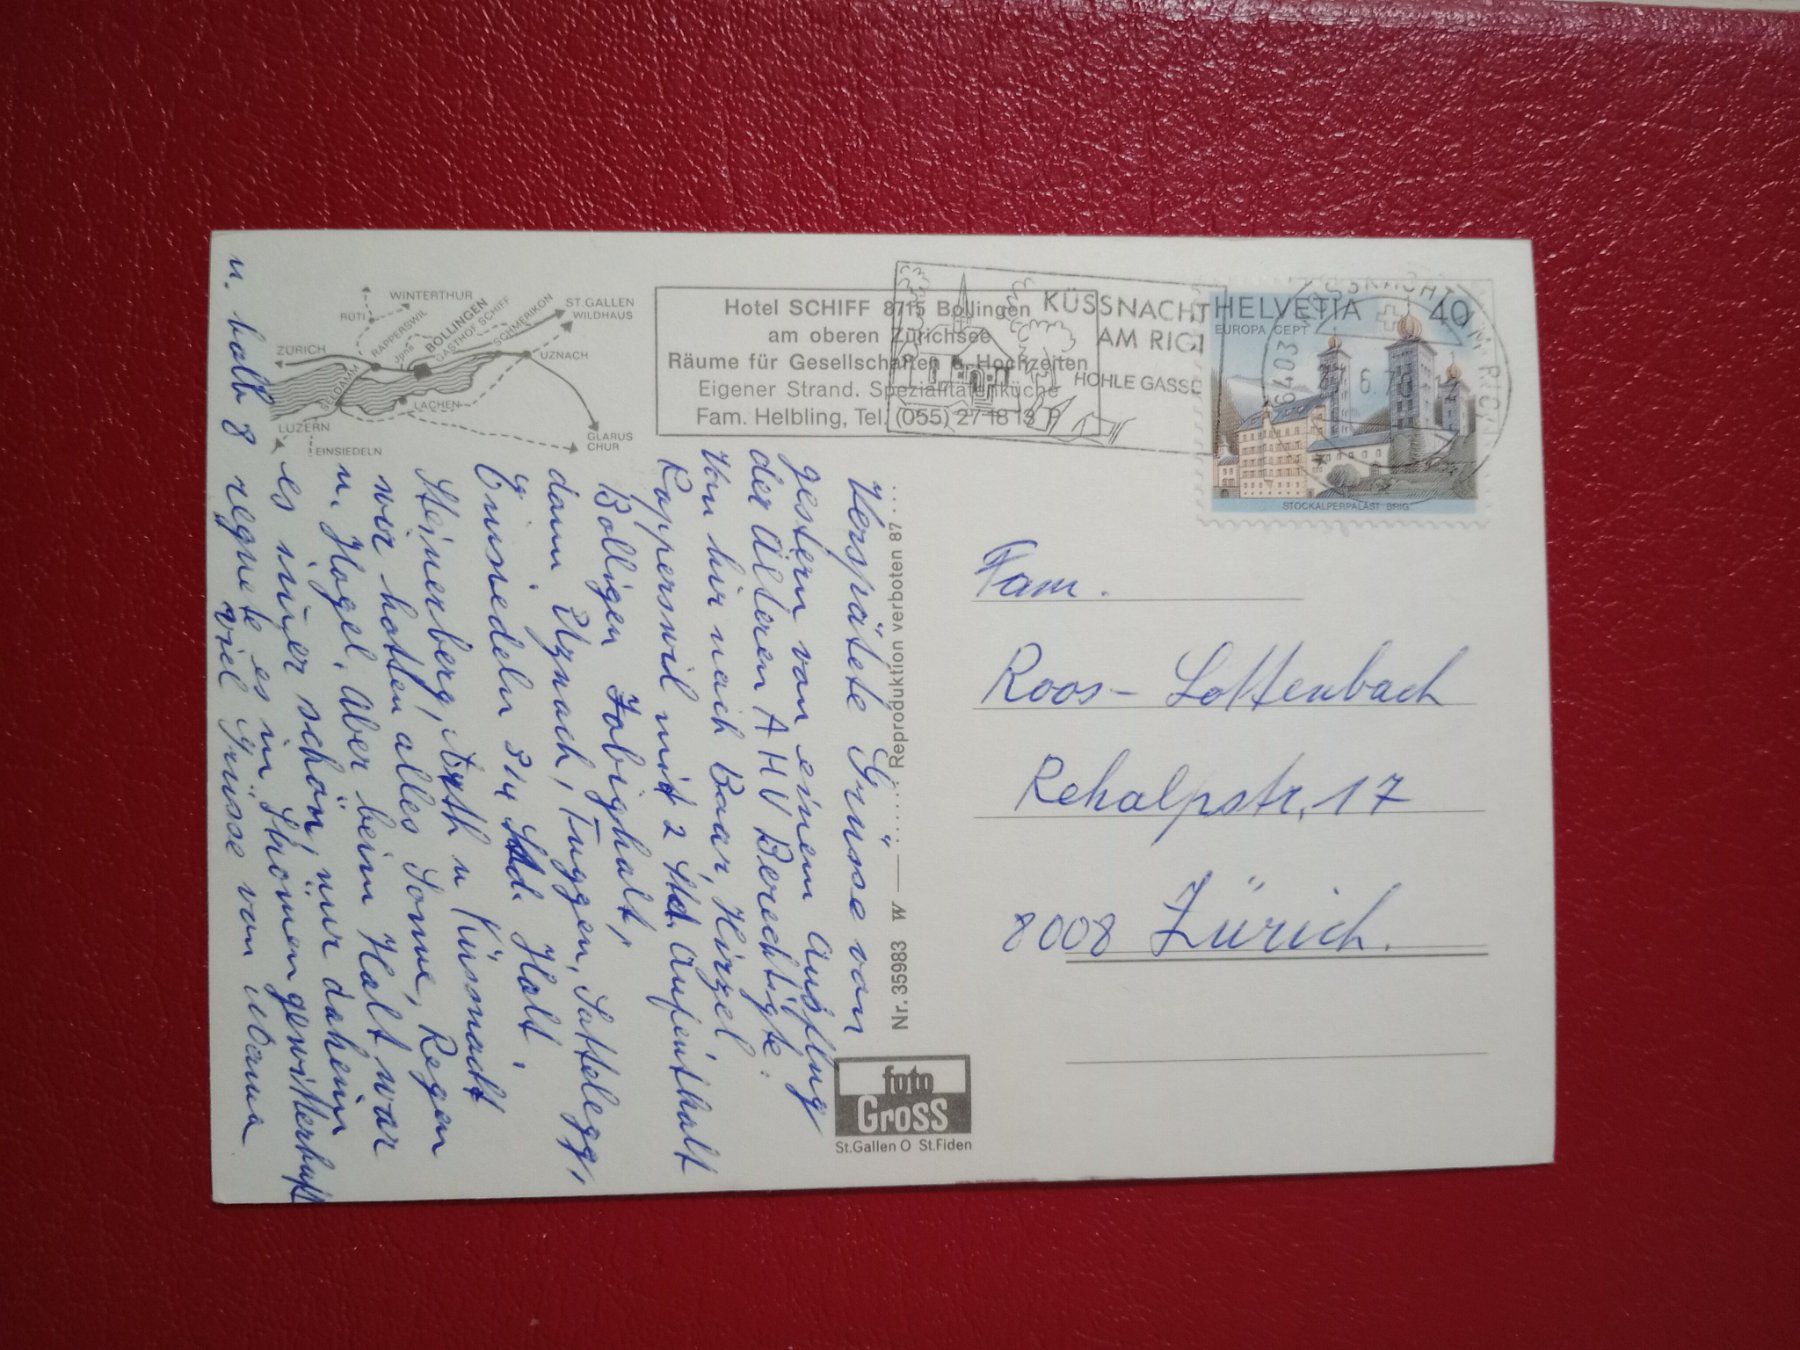 WINTERTHUR
RÜTI
RAPPERSWIL
Jona
BOLLINGEN
GASTHOF SCHIFF
SCHMERIKON
ST.GALLEN
WILDHAUS
ZÜRICH
UZNACH
SEEDAMM
LACHEN
LUZERN
EINSIEDELN
GLARUS
CHUR
Hotel SCHIFF 8715 Bollingen
am oberen Zürichsee
Räume für Gesellschaften u. Hochzeiten
Eigener Strand. Spezialitätenküche
Fam. Helbling, Tel. (055) 27 18 13 P
KÜSSNACHT
AM RIGI
HOHLE GASSE
HELVETIA 40
EUROPA CEPT
STOCKALPERPALAST BRIG
6403 KÜSSNACHT AM RIGI
Verspätete Grüsse von
gestern von einem Ausflug
der Älteren AHV Berechtigte.
Von hir nach Baar, Hirzel
Rapperswil mit 2 Std. Aufenthalt
Bolligen Zabighalt,
dann Uznach, Tuggen, Sattelegg,
Einsiedeln 3/4 Std. Halt,
Steinerberg, Arth u Küsnacht
wir hatten alles Sonne, Regen
u. Hagel. Aber beim Halt war
es imer schön, nur daheim
u. halb 8 regnete es in Strömen gewitterhaft
viel Grüsse von Mama
Nr. 35983 W Reproduktion verboten 87
foto
Gross
St.Gallen O St.Fiden
Fam.
Roos-Lottenbach
Rehalpstr. 17
8008 Zürich.